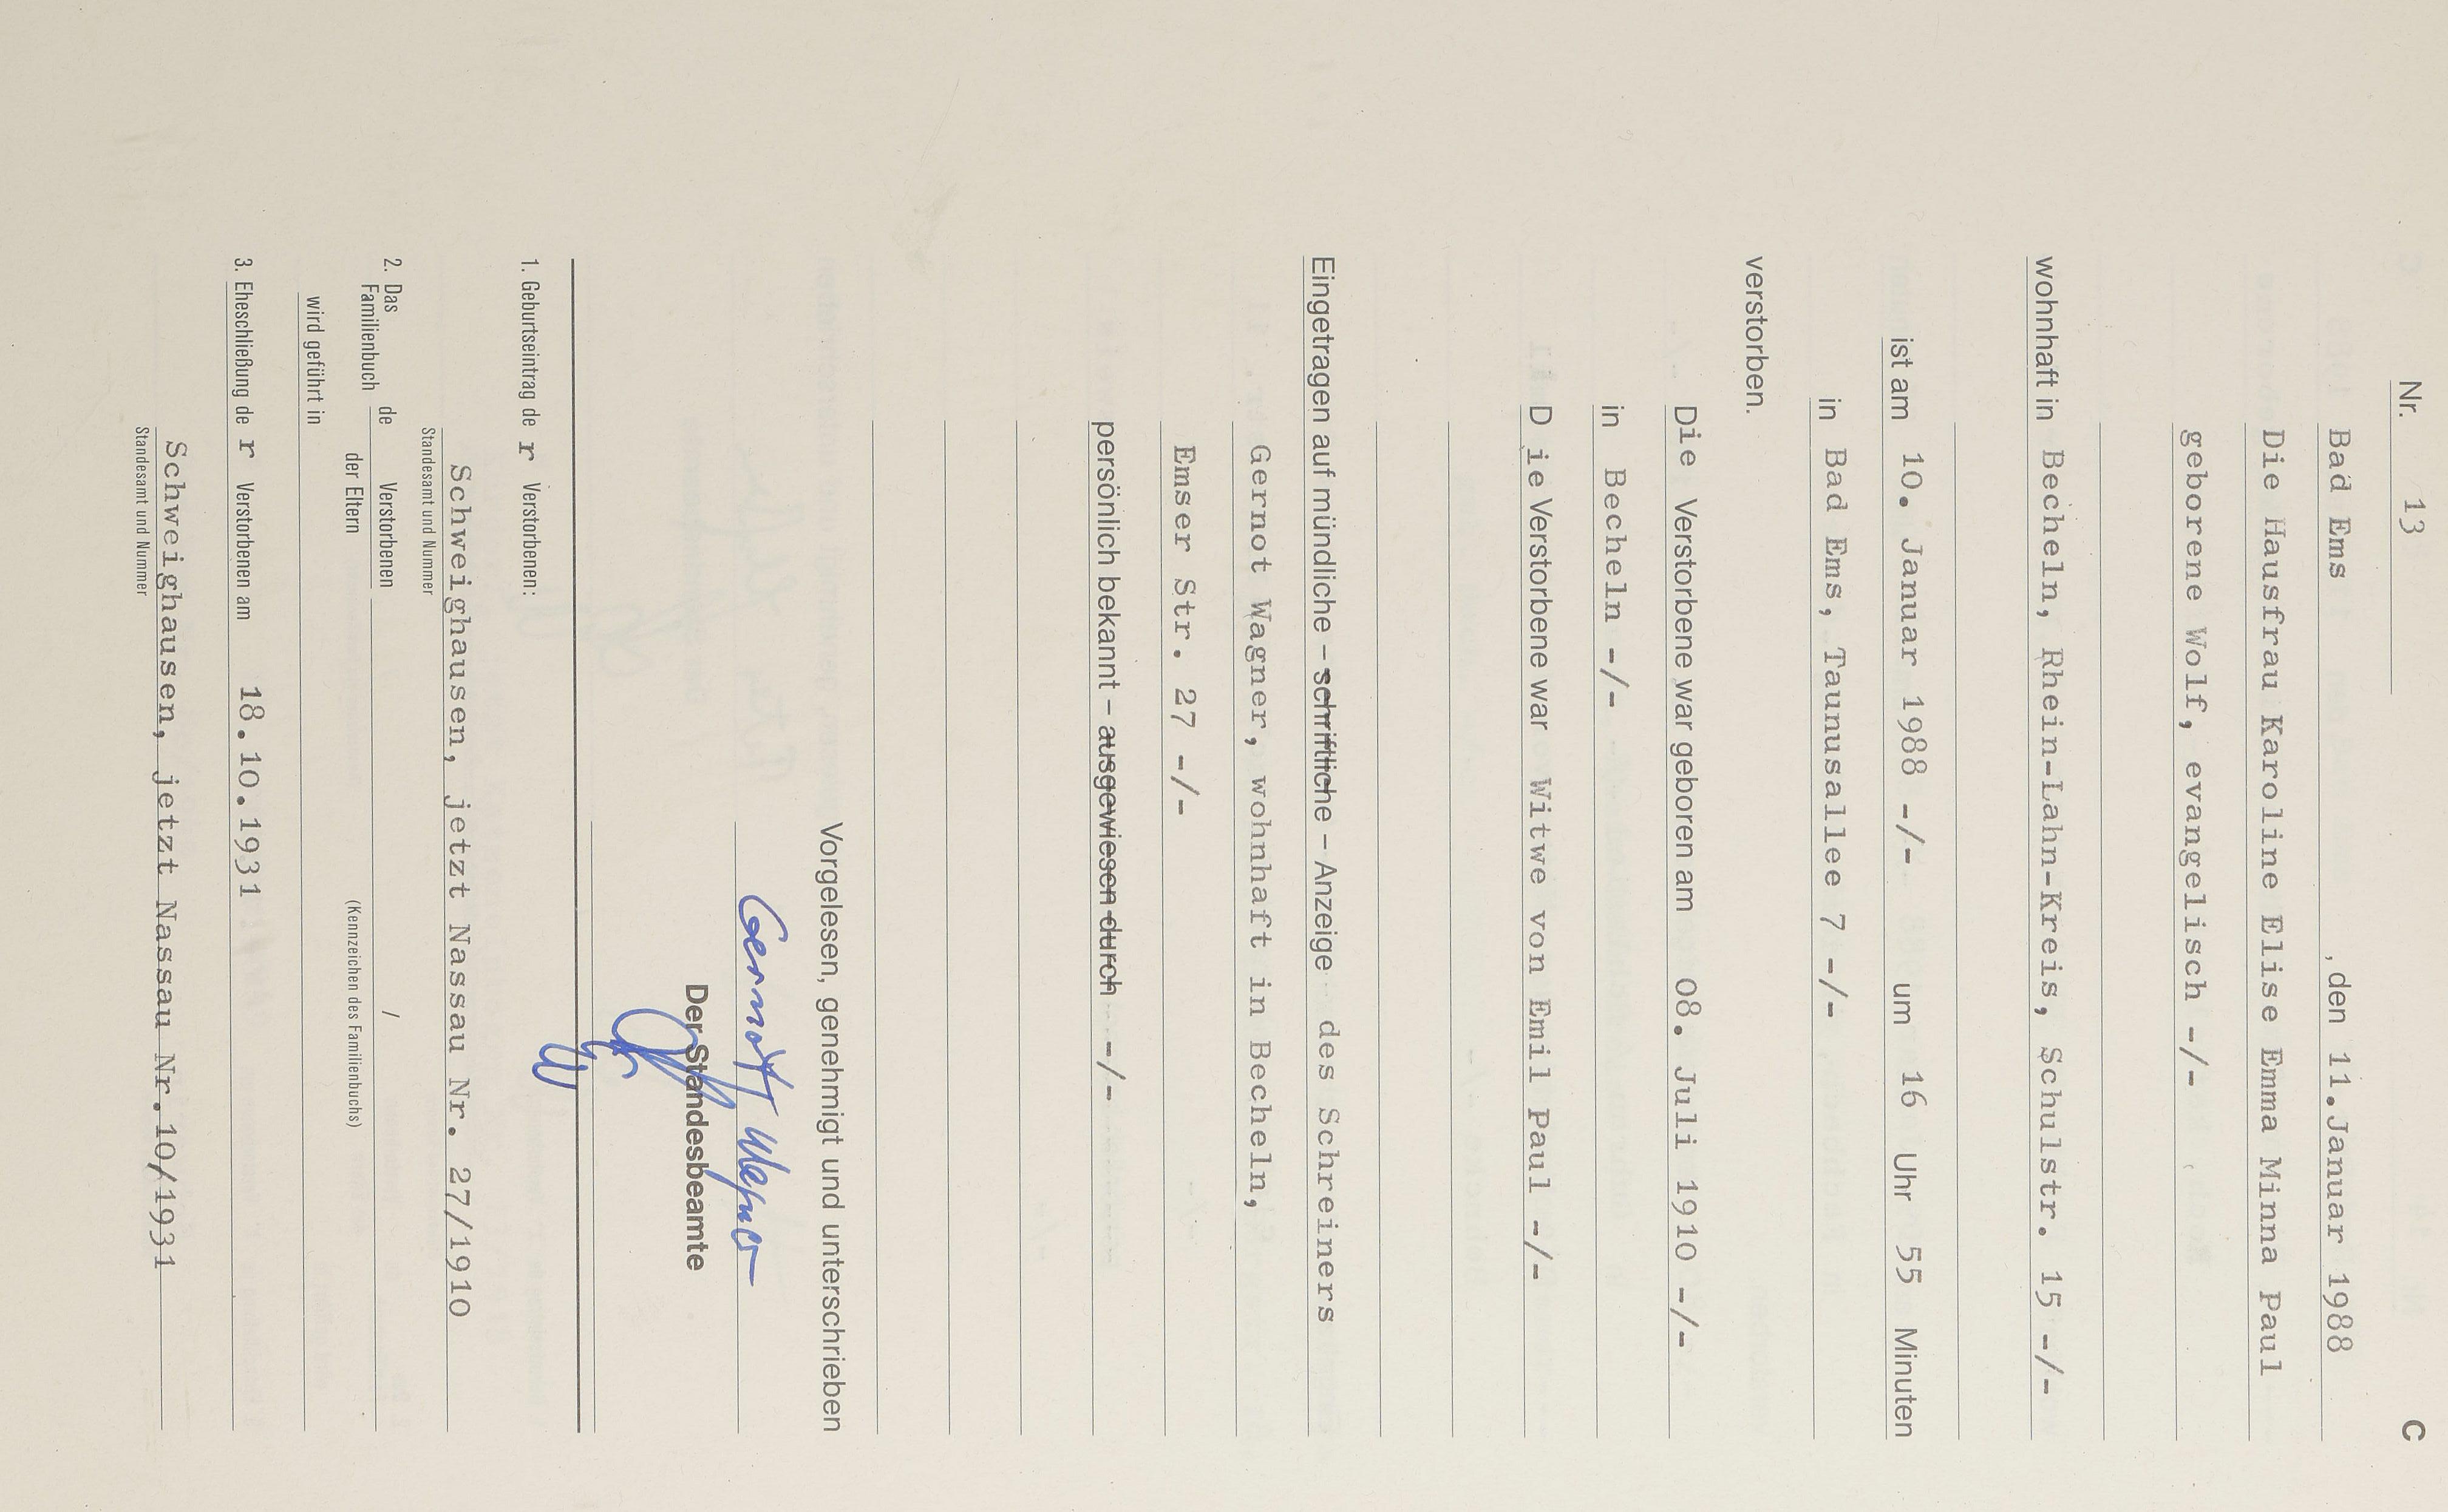 C
Nr. 13
Bad Ems , den 11.Januar 1988
Die Hausfrau Karoline Elise Emma Minna Paul
geborene Wolf, evangelisch -/-
wohnhaft in Becheln, Rhein-Lahn-Kreis, Schulstr. 15 -/-
ist am 10. Januar 1988 -/- um 16 Uhr 55 Minuten
in Bad Ems, Taunusallee 7 -/-
verstorben.
Die Verstorbene war geboren am 08. Juli 1910 -/-
in Becheln -/-
D ie Verstorbene war Witwe von Emil Paul -/-
Eingetragen auf mündliche – schriftliche – Anzeige des Schreiners
Gernot Wagner, wohnhaft in Becheln,
Emser Str. 27 -/-
persönlich bekannt – ausgewiesen durch -/-
Vorgelesen, genehmigt und unterschrieben
Gernot Wagner
Der Standesbeamte
1. Geburtseintrag de r Verstorbenen:
Schweighausen, jetzt Nassau Nr. 27/1910
Standesamt und Nummer
2. Das Familienbuch de Verstorbenen /
der Eltern (Kennzeichen des Familienbuchs)
wird geführt in
3. Eheschließung de r Verstorbenen am 18.10.1931
Schweighausen, jetzt Nassau Nr.10/1931
Standesamt und Nummer